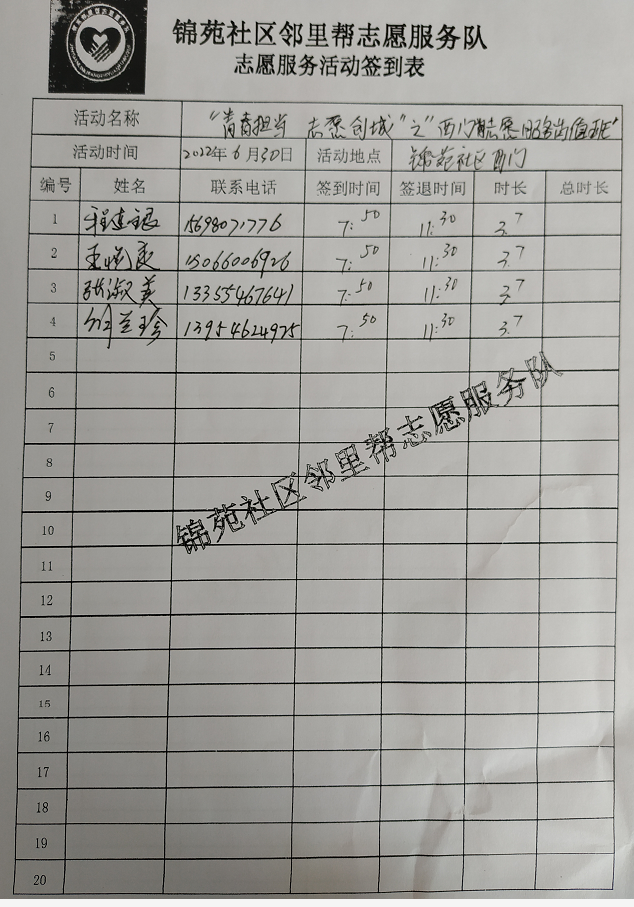 锦苑社区邻里帮志愿服务队
志愿服务活动签到表
活动名称 “青春担当 志愿创城”之“西门岗志愿服务岗值班”
活动时间 2022年6月30日 活动地点 锦苑社区西门
编号 姓名 联系电话 签到时间 签退时间 时长 总时长
1 程建银 15698071776 7:50 11:30 3.7
2 15066006926 7:50 11:30 3.7
3 张淑美 13355467641 7:50 11:30 3.7
4 兰珍 13954624975 7:50 11:30 3.7
5
6
7
8
9
10
11
12
13
14
15
16
17
18
19
20
锦苑社区邻里帮志愿服务队